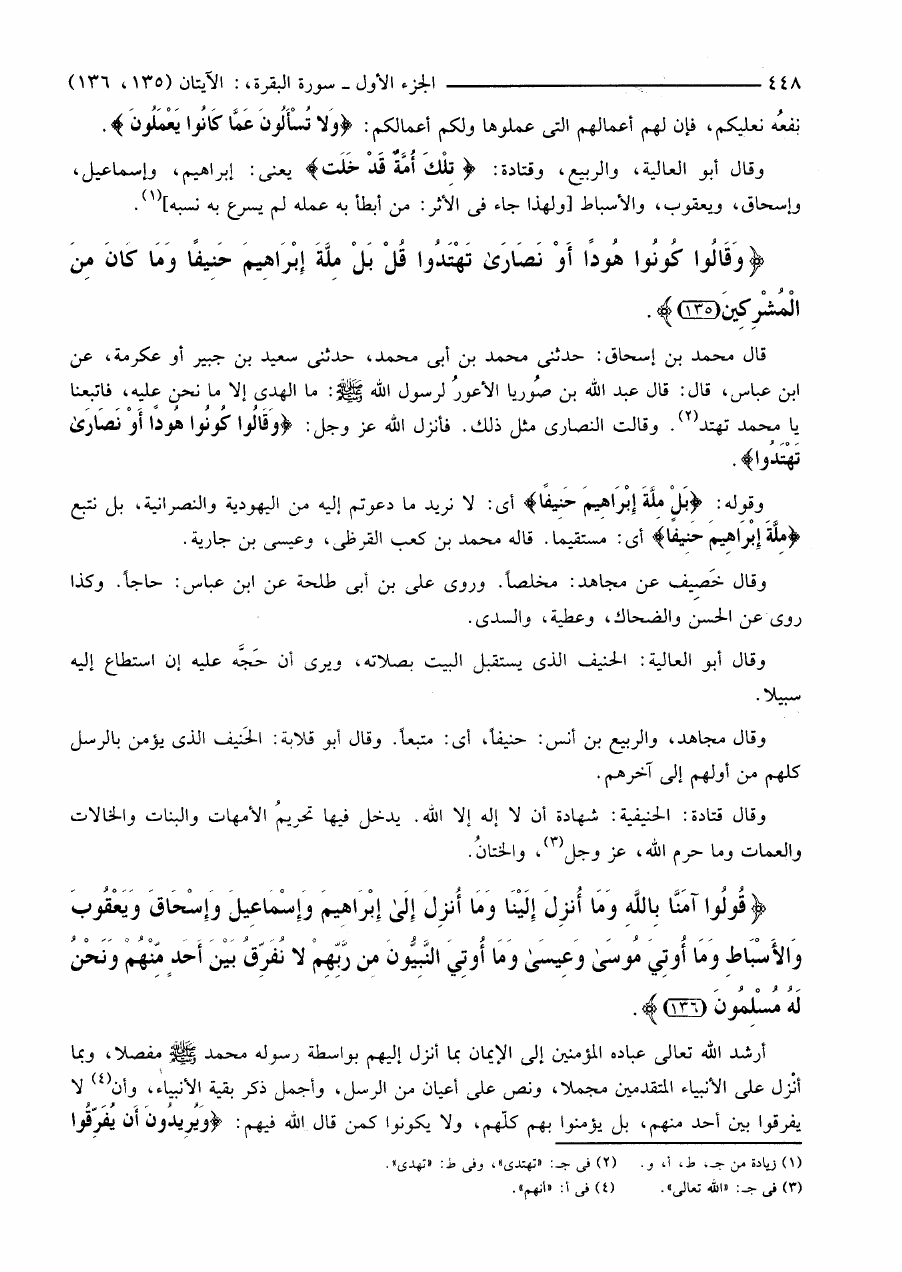 ٤٤٨ ــــــــــ الجزء الأول ـ سورة البقرة، : الآيتان (١٣٥، ١٣٦)
نفعُه نعليكم، فإن لهم أعمالهم التى عملوها ولكم أعمالكم: ﴿وَلا تُسْأَلُونَ عَمَّا كَانُوا يَعْمَلُونَ﴾.
وقال أبو العالية، والربيع، وقتادة: ﴿ تِلْكَ أُمَّةٌ قَدْ خَلَت﴾ يعنى: إبراهيم، وإسماعيل،
وإسحاق، ويعقوب، والأسباط [ولهذا جاء فى الأثر: من أبطأ به عمله لم يسرع به نسبه](١).
﴿وَقَالُوا كُونُوا هُودًا أَوْ نَصَارَىٰ تَهْتَدُوا قُلْ بَلْ مِلَّةَ إِبْرَاهِيمَ حَنِيفًا وَمَا كَانَ مِنَ
الْمُشْرِكِينَ (١٣٥)﴾.
قال محمد بن إسحاق: حدثنى محمد بن أبى محمد، حدثنى سعيد بن جبير أو عكرمة، عن
ابن عباس، قال: قال عبد الله بن صُوريا الأعورُ لرسول الله ﷺ: ما الهدى إلا ما نحن عليه، فاتبعنا
يا محمد تهتد(٢). وقالت النصارى مثل ذلك. فأنزل الله عز وجل: ﴿وَقَالُوا كُونُوا هُودًا أَوْ نَصَارَىٰ
تَهْتَدُوا﴾.
وقوله: ﴿بَلْ مِلَّةَ إِبْرَاهِيمَ حَنِيفًا﴾ أى: لا نريد ما دعوتم إليه من اليهودية والنصرانية، بل نتبع
﴿مِلَّةَ إِبْرَاهِيمَ حَنِيفًا﴾ أى: مستقيما. قاله محمد بن كعب القرظى، وعيسى بن جارية.
وقال خَصِيف عن مجاهد: مخلصاً. وروى على بن أبى طلحة عن ابن عباس: حاجاً. وكذا
روى عن الحسن والضحاك، وعطية، والسدى.
وقال أبو العالية: الحنيف الذى يستقبل البيت بصلاته، ويرى أن حَجَّه عليه إن استطاع إليه
سبيلا.
وقال مجاهد، والربيع بن أنس: حنيفاً، أى: متبعاً. وقال أبو قلابة: الحَنيف الذى يؤمن بالرسل
كلهم من أولهم إلى آخرهم.
وقال قتادة: الحنيفية: شهادة أن لا إله إلا الله. يدخل فيها تحريمُ الأمهات والبنات والخالات
والعمات وما حرم الله، عز وجل(٣)، والختانُ.
﴿قُولُوا آمَنَّا بِاللَّهِ وَمَا أُنزِلَ إِلَيْنَا وَمَا أُنزِلَ إِلَىٰ إِبْرَاهِيمَ وَإِسْمَاعِيلَ وَإِسْحَاقَ وَيَعْقُوبَ
وَالأَسْبَاطِ وَمَا أُوتِيَ مُوسَىٰ وَعِيسَىٰ وَمَا أُوتِيَ النَّبِيُّونَ مِن رَّبِّهِمْ لا نُفَرِّقُ بَيْنَ أَحَدٍ مِّنْهُمْ وَنَحْنُ
لَهُ مُسْلِمُونَ (١٣٦)﴾.
أرشد الله تعالى عباده المؤمنين إلى الإيمان بما أنزل إليهم بواسطة رسوله محمد ﷺ مفصلا، وبما
أنْزل على الأنبياء المتقدمين مجملا، ونص على أعيان من الرسل، وأجمل ذكر بقية الأنبياء، وأن(٤) لا
يفرقوا بين أحد منهم، بل يؤمنوا بهم كلّهم، ولا يكونوا كمن قال الله فيهم: ﴿وَيُرِيدُونَ أَن يُفَرِّقُوا
(١) زيادة من جـ، ط، أ، و. (٢) فى جـ: «تهتدى»، وفى ط: «تهدى».
(٣) فى جـ: «الله تعالى». (٤) فى أ: «أنهم».